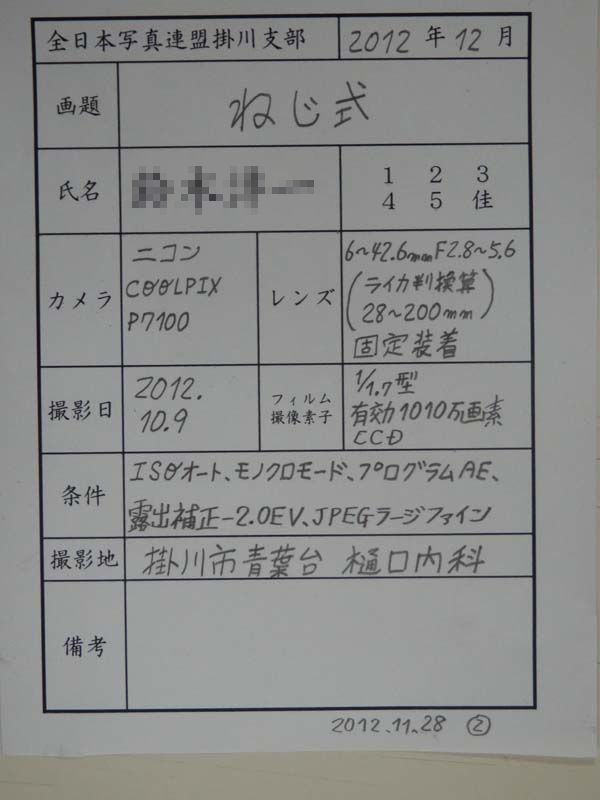 全日本写真連盟掛川支部 2012年12月
画題 ねじ式
氏名
1 2 3
4 5 佳
カメラ
ニコン
COOLPIX
P7100
レンズ
6〜42.6mmF2.8〜5.6
(ライカ判換算
28〜200mm)
固定装着
撮影日
2012.
10.9
フィルム
撮像素子
1/1.7型
有効1010万画素
CCD
条件
ISOオート、モノクロモード、プログラムAE、
露出補正-2.0EV、JPEGラージファイン
撮影地 掛川市青葉台 樋口内科
備考
2012.11.28 ②